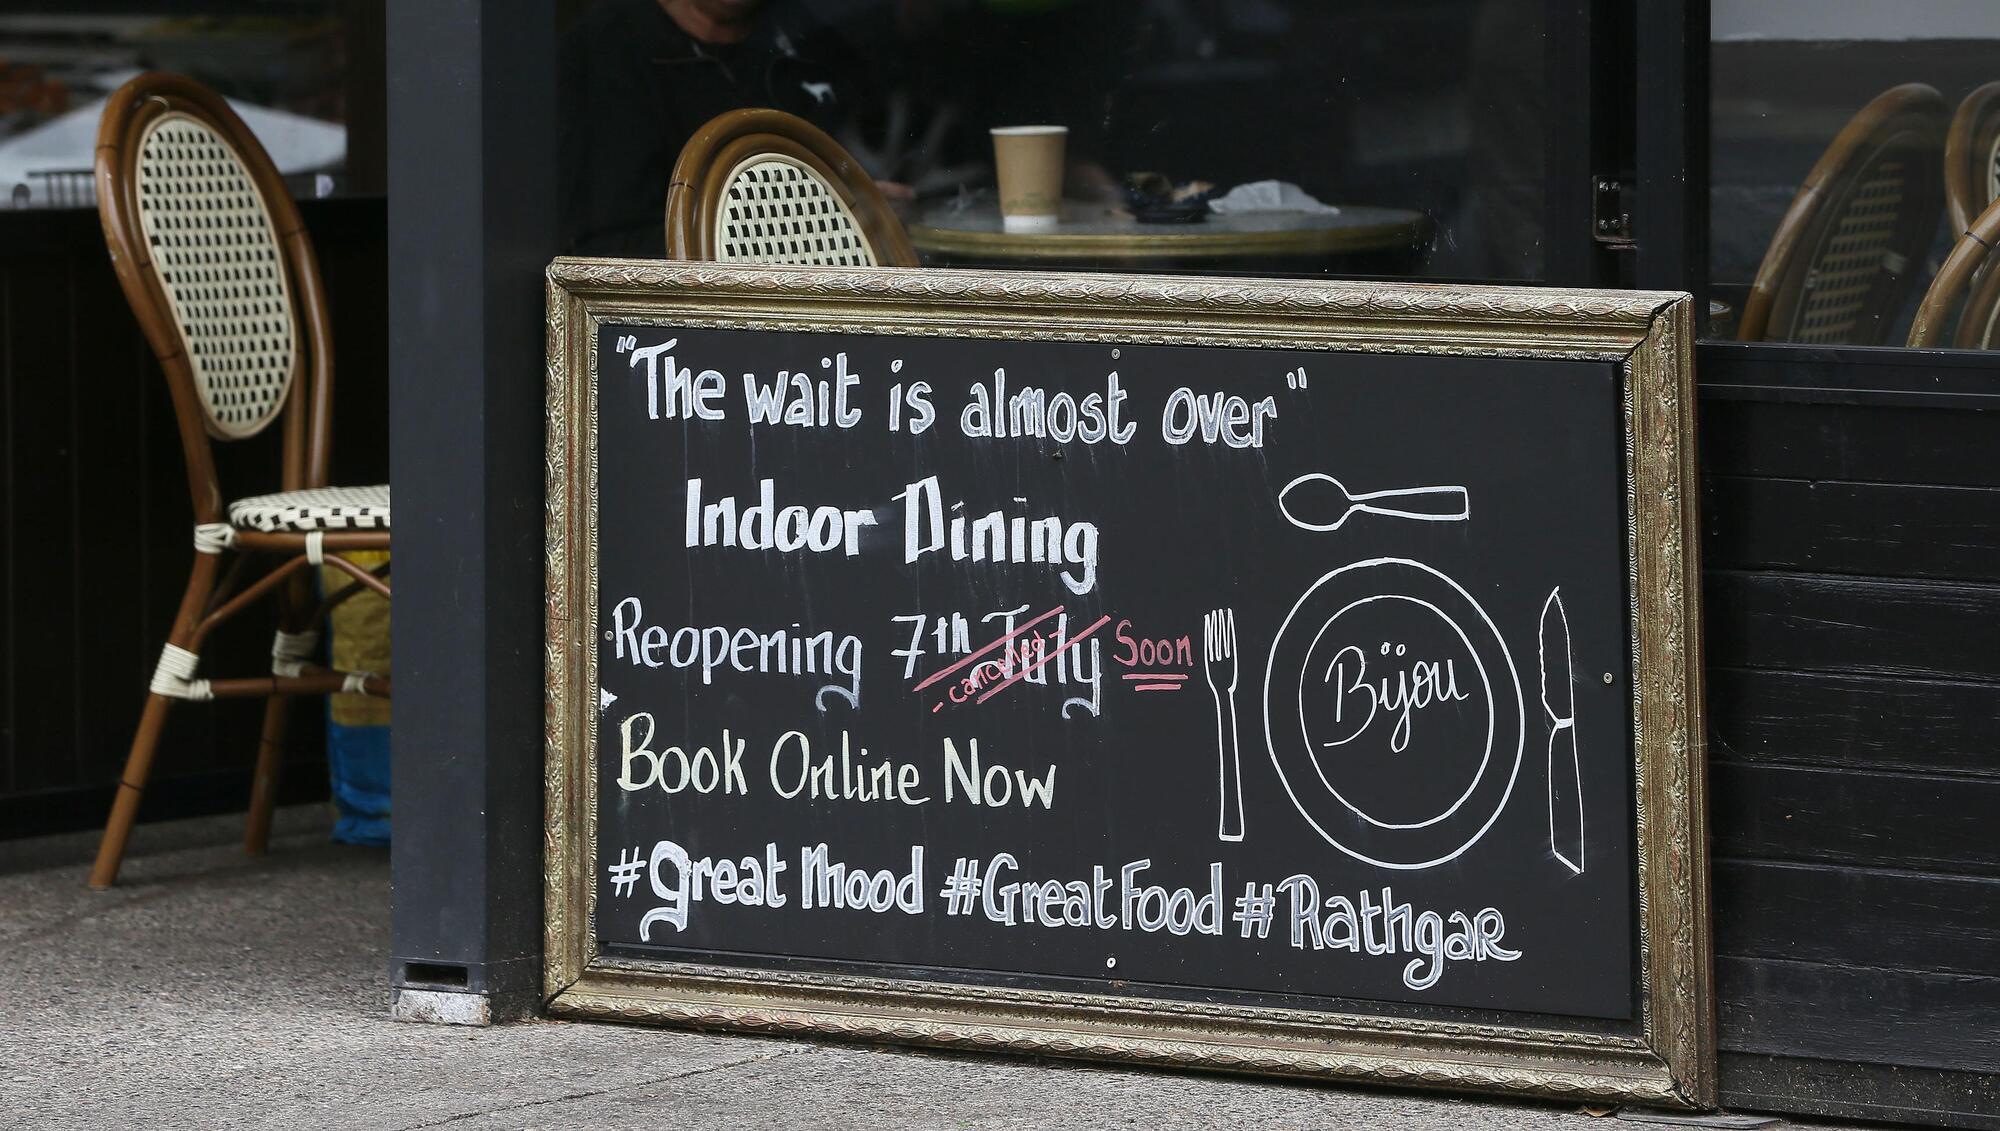 "The wait is almost over"
Indoor Dining
Reopening 7th July Soon
- cancelled -
Book Online Now
Bijou
#great mood #Great Food #Rathgar